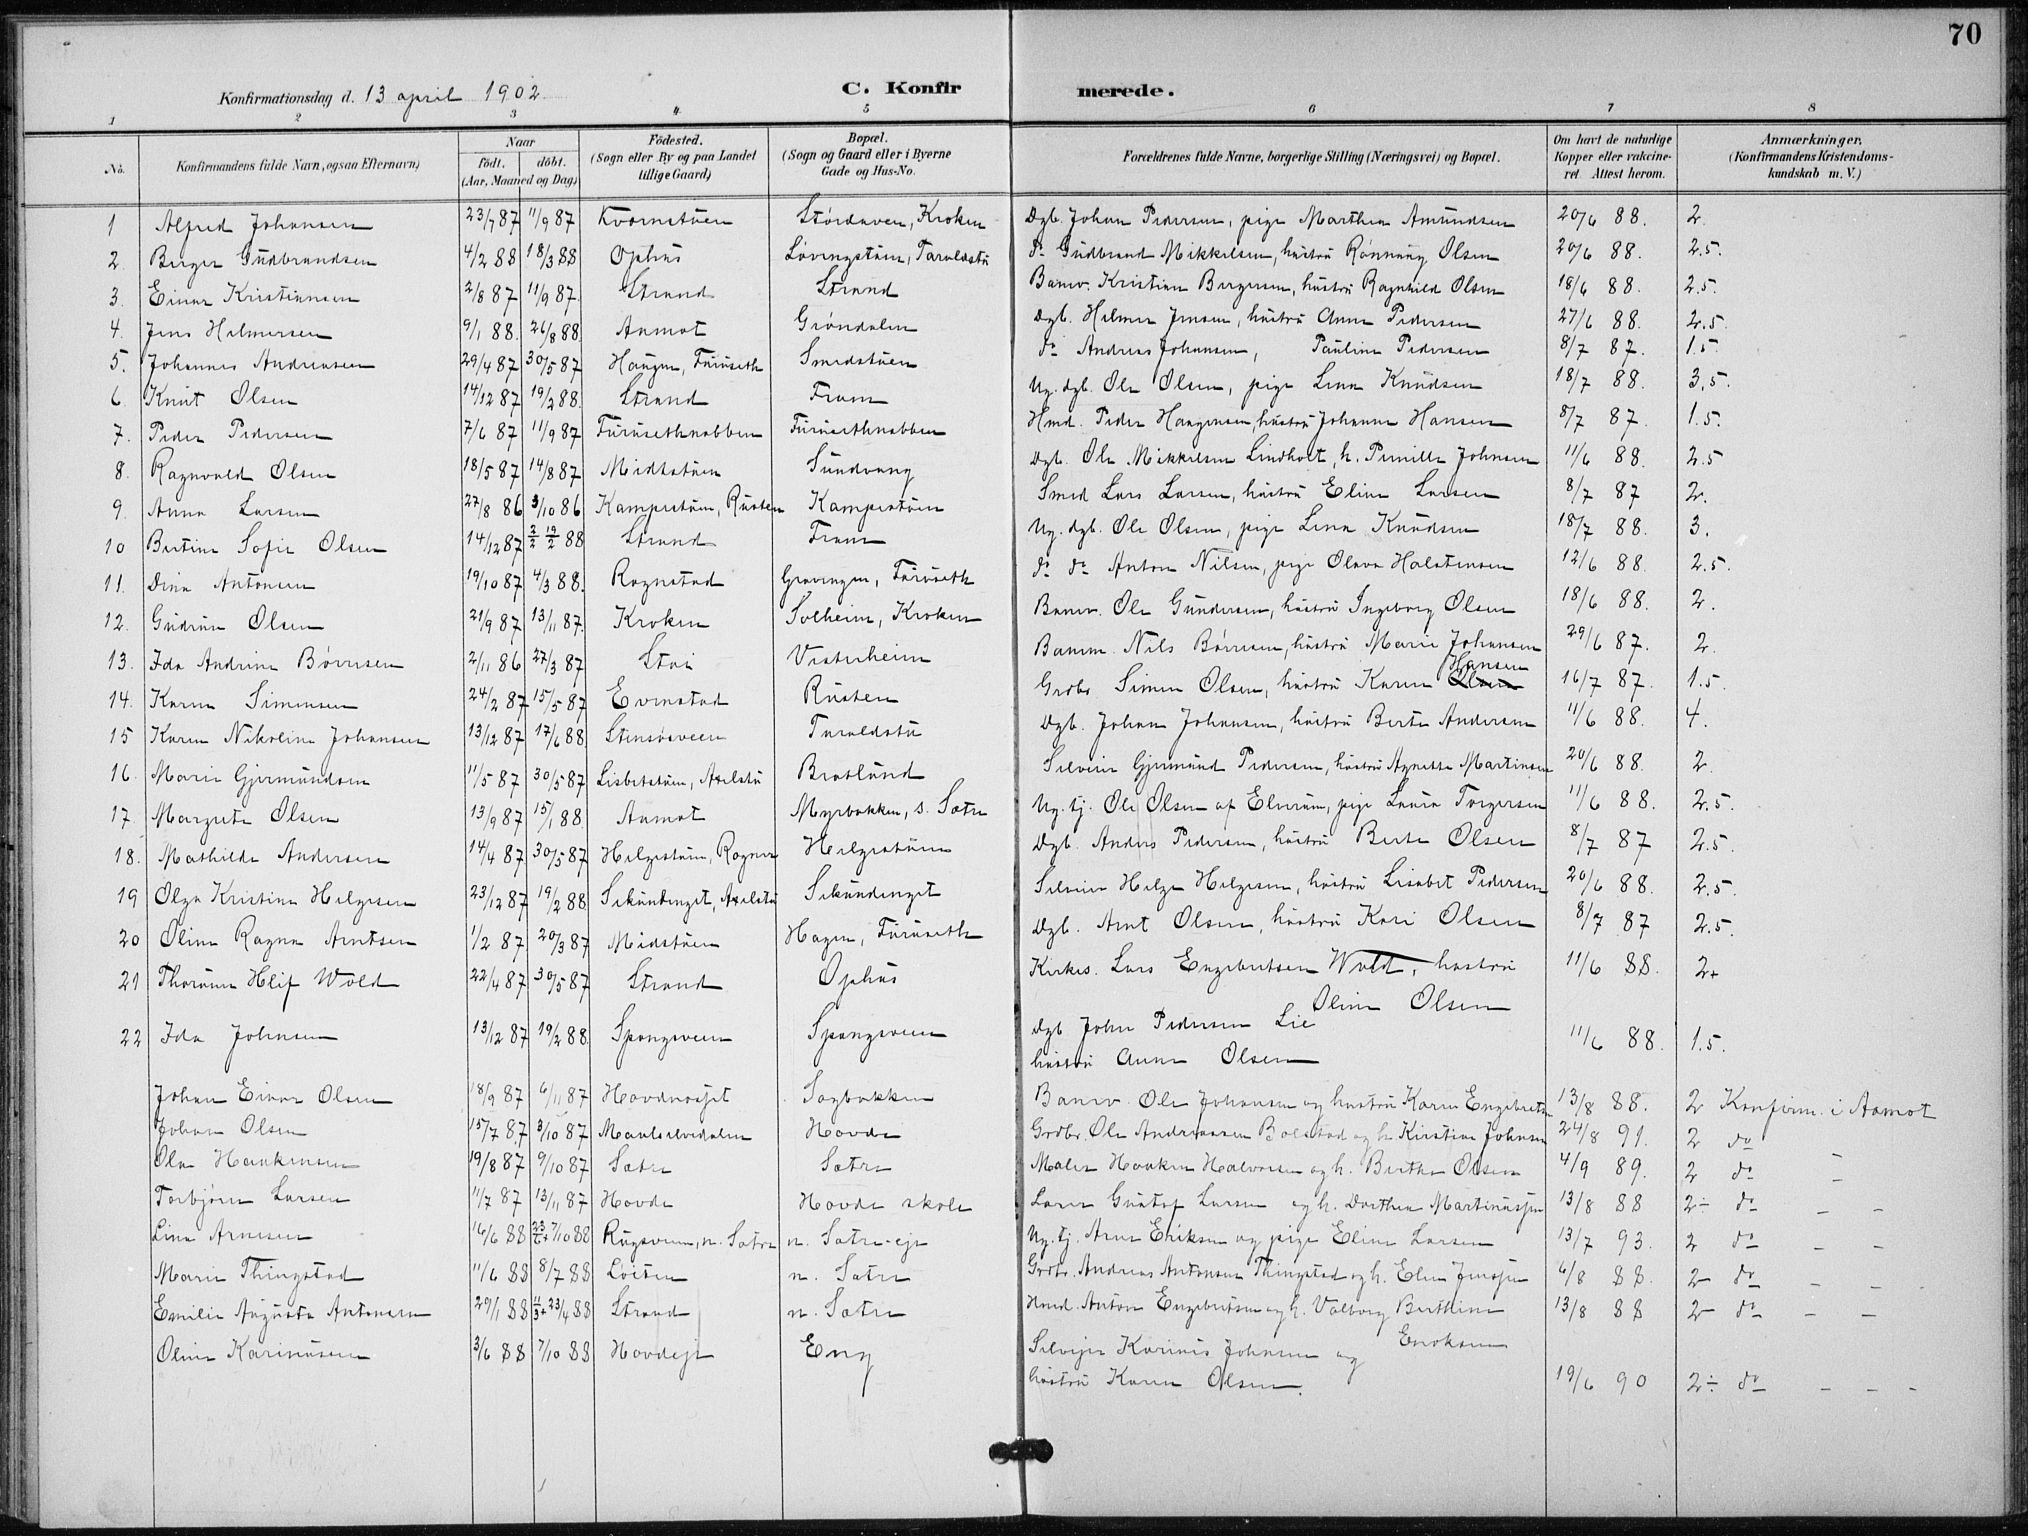 70
Konfirmationsdag d. 13 april 1902. C. Konfir merede.
1 2 3 4 5 6 7 8
No. Konfirmandens fulde Navn, ogsaa Efternavn) Naar födt. döbt. (Aar, Maaned og Dag) Födested. (Sogn eller By og paa Landet tillige Gaard) Bopæl. (Sogn og Gaard eller i Byerne Gade og Hus-No. Forældrenes fulde Navne, borgerlige Stilling (Næringsvei) og Bopæl. Om havt de naturlige Kopper eller vakcineret. Attest herom. Anmærkninger, (Konfirmandens Kristendomskundskab m. V.)
1 Alfred Johansen 23/7 87 11/9 87 Kværnstuen Kroken Dgb. Johan Pedersen, pige Marthea Amundsen 20/6 88. 2.
2. Birger Gudbrandsen 4/2 88 18/3 88 Ophus Løvingstuen, Taraldstu do Gudbrand Mikkelsen, hustru Rønnaug Olsen 20/6 88. 2.5.
3. Einar Kristiansen 2/8 87 11/9 87. Strand Strand Banev. Kristian Birgersen, hustru Ragnhild Olsen 18/6 88. 2.5.
4. Jens Helmersen 9/1 88. 26/8 88 Aamot Grøndalen Dgb. Helmer Jensen, hustru Anne Pedersen 27/6 88. 2.5.
5. Johannes Andreasen 29/4 87 30/5 87 Haugen, Furuseth Smedstuen do Andreas Johansen, Pauline Pedersen 8/7 87. 1.5.
6. Knut Olsen 14/12 87 19/2 88. Strand Fram Ug. dgb. Ole Olsen, pige Lina Knudsen 18/7 88. 3.5.
7. Peder Pedersen 7/6 87 11/9 87 Furusethnabben Furusethnabben Hmd. Peder Haagensen, hustru Johanne Hansen 8/7 87. 1.5.
8. Ragnvald Olsen 18/5 87 14/8 87 Midtstuen Sundvang Dgb. Ole Mikkelsen Lindholt, h. Pernille Johnsen 11/6 88. 2.5
9. Anna Larsen 27/8 86 3/10 86 Kampestuen, Rusten Kampestuen Smed Lars Larsen, hustru Eline Larsen 8/7 87 2.
10 Bertine Sofie Olsen 14/12 87 2/2 19/2 88 Strand Fram Ug. dgb. Ole Olsen, pige Lina Knudsen 18/7 88. 3.
11. Dina Antonsen 19/10 87 4/3 88. Rognstad Furuseth do do Anton Nilsen, pige Olava Halstensen 12/6 88. 2.5.
12. Gudrun Olsen 21/9 87 13/11 87. Kroken Solheim, Kroken Banev. Ole Gundersen, hustru Ingeborg Olsen 18/6 88. 2.
13. Ida Andrine Børresen 2/11 86 27/3 87 Stai Vesterheim Banem. Nils Børresen, hustru Marie Johansen 29/6 87. 2.
14. Karen Simensen 24/2 87 15/5 87 Evenstad Rusten Grdbr. Simen Olsen, hustru Karen Olsen Hansen 16/7 87. 1.5.
15 Karen Nikoline Johansen 13/12 87 17/6 88 Stensåsveen Taraldstu Dgb. Johan Johansen, hustru Berte Andersen 11/6 88. 4.
16. Marie Gjermundsen 11/5 87 30/5 87 Lisbetstuen, Axelstu Bratlund Selveier Gjermund Pedersen, hustru Agnethe Martinsen 20/6 88. 2.
17. Margrete Olsen 13/9 87 15/1 88. Aamot Myrbakken, s. Sætre Ug. tj. Ole Olsen af Elverum, pige Laura Torgersen 11/6 88. 2.5.
18. Mathilde Andersen 14/4 87 30/5 87 Helgestuen, Rogner Helgestuen Dgb. Anders Pedersen, hustru Berte Olsen 8/7 87 2.5.
19 Olga Kristine Helgesen 23/12 87 19/2 88. Sekundinget, Axelstu Sekundinget Selveier Helge Helgesen, hustru Lisabet Pedersen 20/6 88. 2.5.
20 Oline Ragna Arntsen 1/2 87 20/3 87 Midstuen Hagen, Furuseth Dgb. Arnt Olsen, hustru Kari Olsen 8/7 87 2.5.
21 Thorunn Hlif Wold 22/4 87 30/5 87 Strand Ophus Kirkes. Lars Engebretsen Wold, hustru Oline Olsen 11/6 88. 2+
22 Ida Johnsen 13/12 87 19/2 88. Spangsveen Spangsveen Dgb John Pedersen Lie
hustru Anne Olsen 11/6 88. 1.5.
Johan Einar Olsen 18/9 87 6/11 87 Hovdmoset Sagbakken Banev. Ole Johansen og hustru Karen Engebretsen 13/8 88. 2 Konfirm. i Aamot
Johan Olsen 15/7 87 3/10 87 Hovde Grdbr. Ole Andreassen Bolstad og h. Kirstine Johnsen 24/8 91. 2 do –
Ola Haakensen 19/8 87 9/10 87 Sætre Sætre Maler Haaken Halvorsen og h. Berthe Olsen 4/9 89. 2 do –
Torbjørn Larsen 11/7 87 13/11 87 Hovde Hovde skole Lærer Gustaf Larsen og h. Dorthea Martinussen 13/8 88 2÷ do – –
Lina Arnesen 16/6 88 7/10 88 Rugsveen, n. Sætre n. Sætre-eje Ug. tj. Arne Eriksen og pige Eline Larsen 13/7 93. 2 do – –
Marie Thingstad 11/6 88 8/7 88 Löiten n. Sætre Grdbr. Andreas Antonsen Thingstad og h. Elen Jenssen 6/8 88. 2 do – –
Emilie Augusta Antonsen 29/1 88 11/3+23/4 88 Strand n. Sætre Hmd. Anton Engebretsen og h. Valborg Berthine Enoksen 13/8 88 2 do – –
Oline Karinusen 3/6 88 7/10 88 Hovdeje Eng Selvejer Karinus Johnsen og
hustru Karen Olsen. 19/6 90 2÷ do – – –